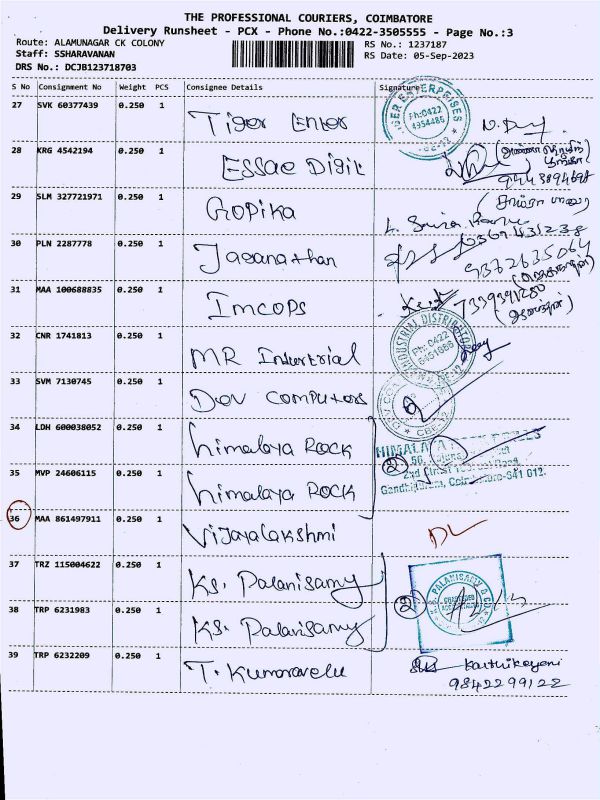 THE PROFESSIONAL COURIERS, COIMBATORE
Delivery Runsheet - PCX - Phone No.:0422-3505555 - Page No.:3
Route: ALAMUNAGAR CK COLONY
RS No.: 1237187
Staff: SSHARAVANAN
RS Date: 05-Sep-2023
DRS No.: DCJB123718703
S No Consignment No Weight PCS Consignee Details Signature
27 SVK 60377439 0.250 1 Tiger Enter
Ph:0422
4954485
28 KRG 4542194 0.250 1 Essae Digit
9443894698
29 SLM 327721971 0.250 1 Gopika
30 PLN 2287778 0.250 1 Jaganathan
9372635064
31 MAA 100688835 0.250 1 Imcops
32 CNR 1741813 0.250 1 MR Industrial
INDUSTRIAL DISTRIBUTOR
Ph: 0422
33 SVM 7130745 0.250 1 Dev Computors
34 LDH 600038052 0.250 1 himalaya Rock
HIMALAYA
2
Gandhipuram, Coimbatore-641 012.
35 MVP 24606115 0.250 1 himalaya Rock
36 MAA 861497911 0.250 1 Vijayalakshmi DL
37 TRZ 115004622 0.250 1 Ks. Palanisamy
2
PALANISAMY & CO
38 TRP 6231983 0.250 1 Ks. Palanisamy
39 TRP 6232209 0.250 1 T. Kumaravelu Karthikayeni
9842299122